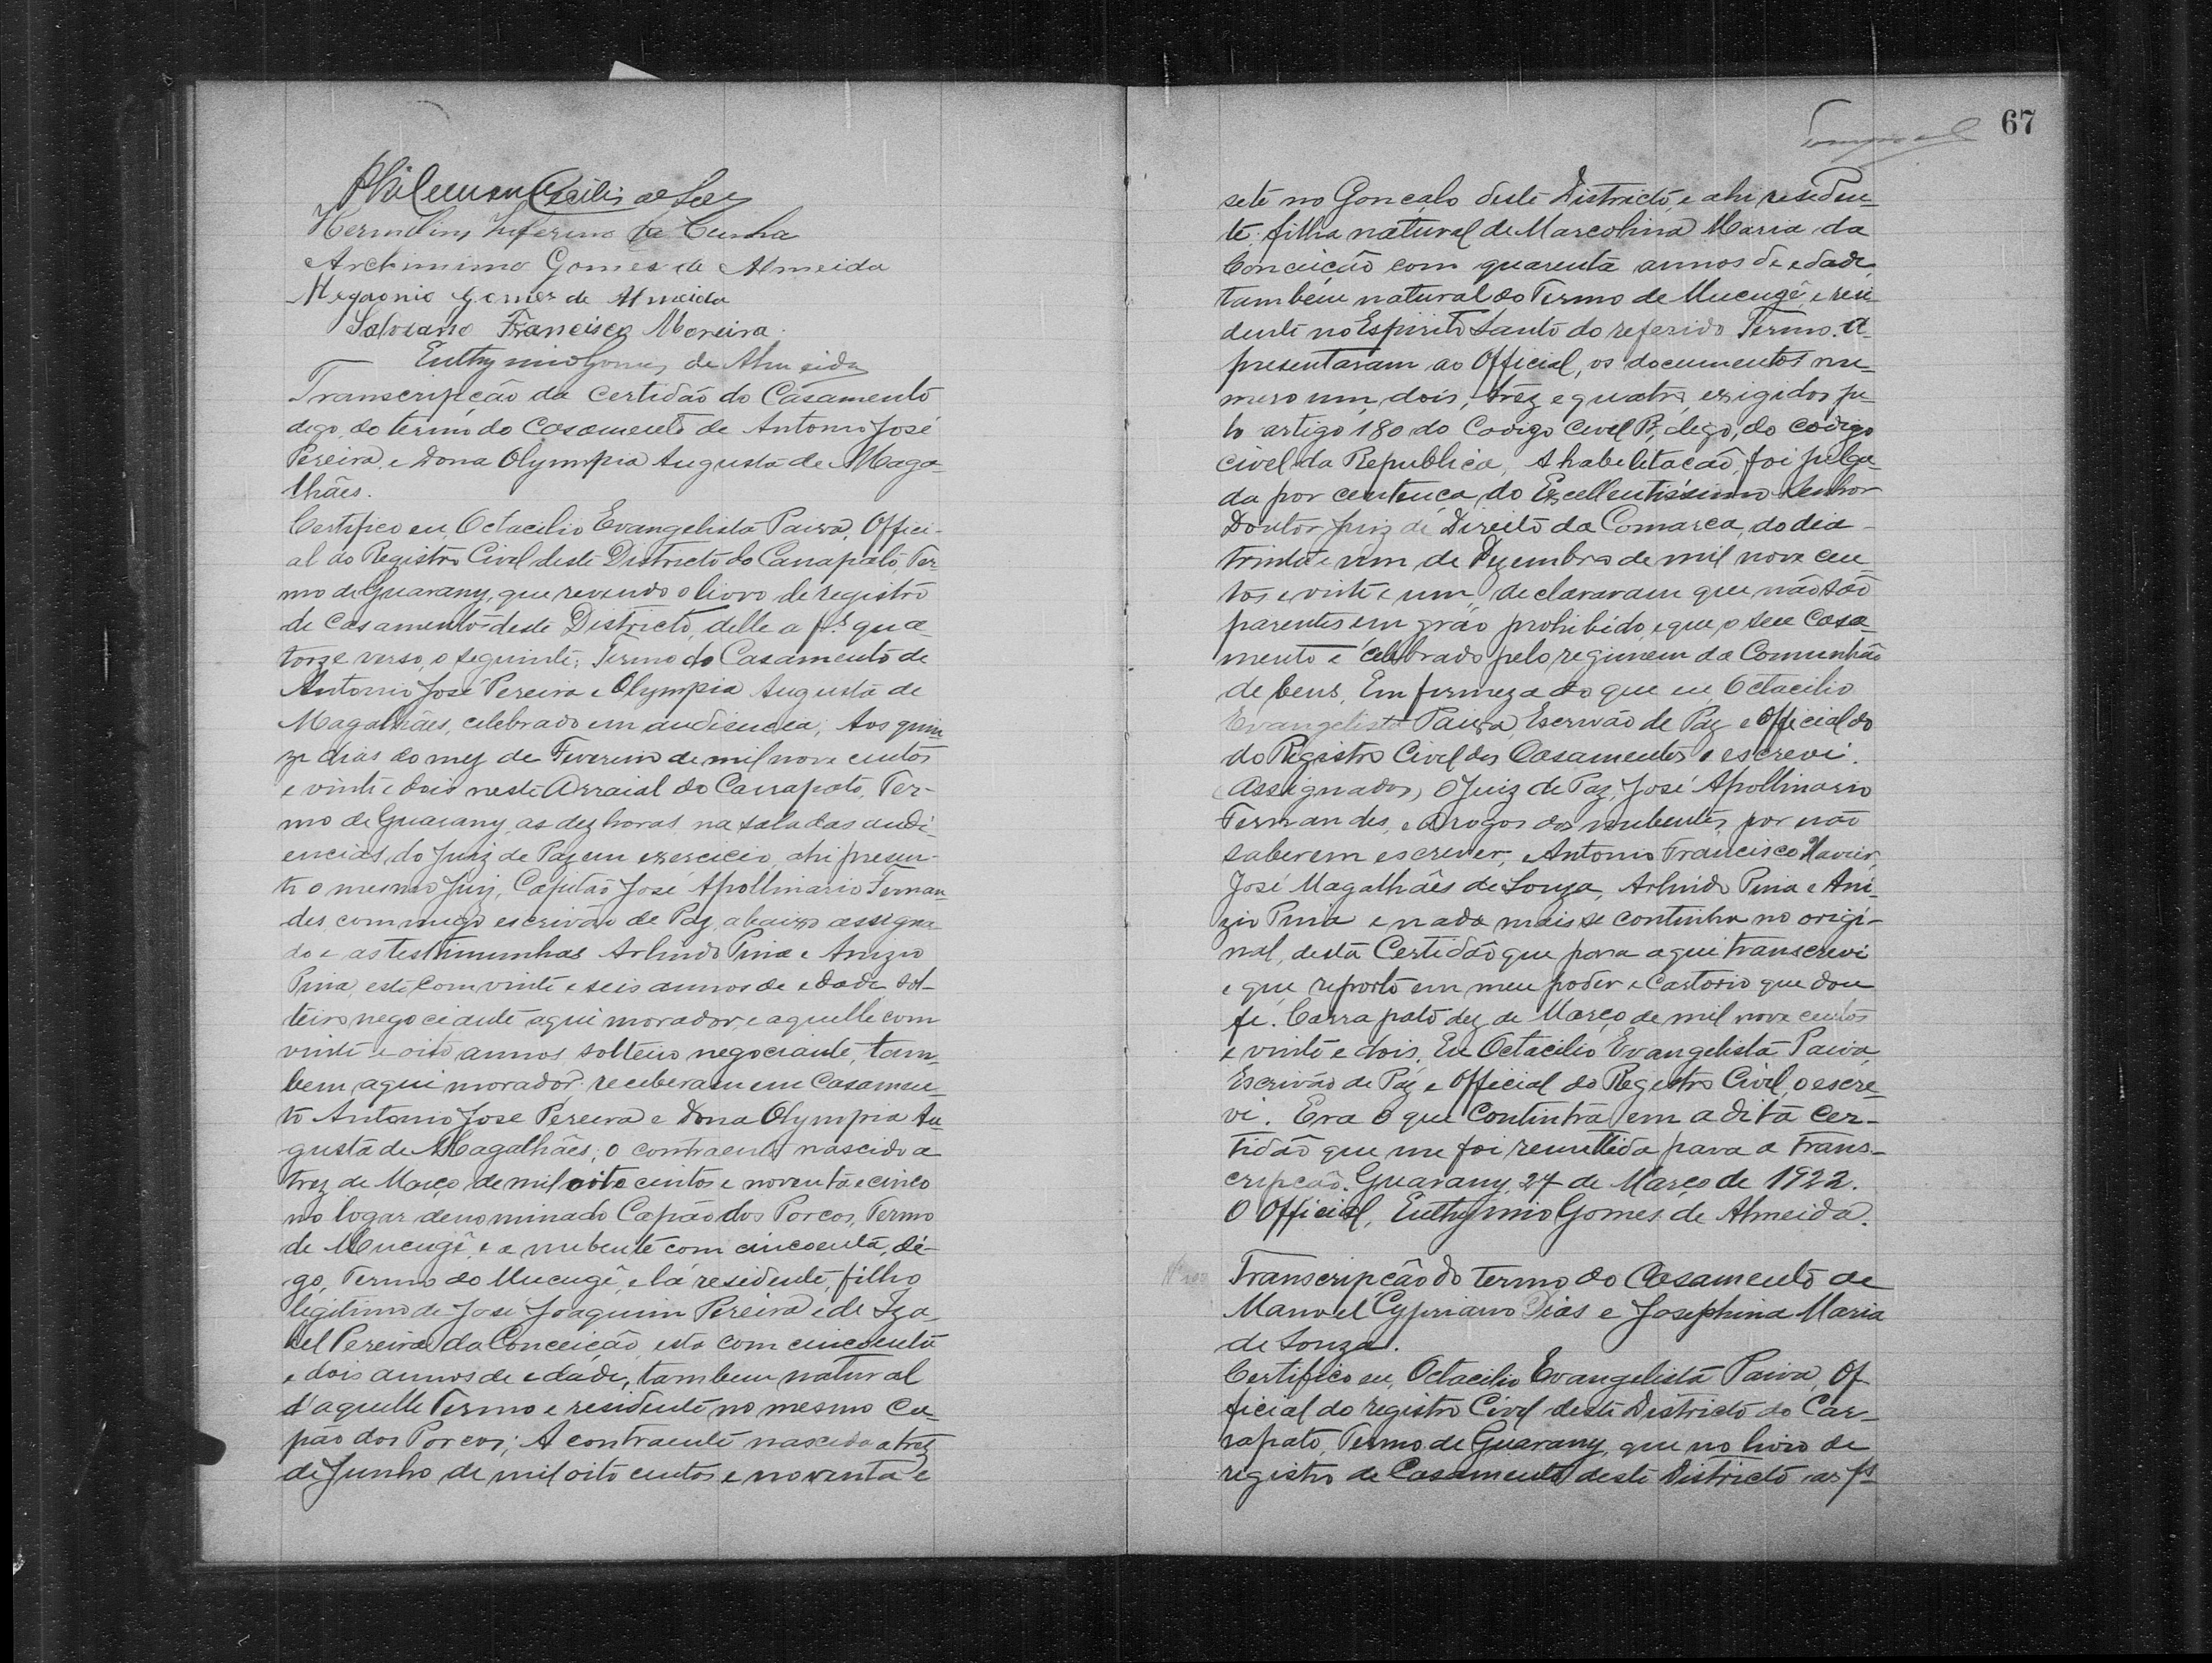 Philemon Cecilio de
Hermelino Zeferino da Cunha
Archimimo Gomes de Almeida
Gomes de Almeida
Salviano Francisco Moreira.
Euthymio Gomes de Almeida
Transcripção da Certidão do Casamento
digo, do termo do Casamento de Antonio José
Pereira, e Dona Olympia Augusta de Maga-
lhães.
Certifico eu, Octacilio Evangelista Paiva, Offici-
al do Registro Civel deste Districto do Carrapato, Ter-
mo de Guarany, que revendo o livro de registro
de Casamentos deste Districto, delle a fs. qua-
torze verso, o seguinte: Termo do Casamento de
Antonio José Pereira e Olympia Augusta de
Magalhães, celebrado em audiencia; Aos quin-
ze dias do mez de Fevereiro de mil nove centos
e vinte e dois neste Arraial do Carrapato, Ter-
mo de Guarany, as dez horas, na sala das audi-
encias, do Juiz de Paz em exercicio, ahi presen-
te o mesmo Juiz, Capitão José Apollinario Fernan-
des, commigo escrivão de Paz, abaixo assigna-
do e as testimunhas Arlindo Pina e Anizio
Pina, este com vinte e seis annos de edade sol-
teiro negociante aqui morador, e aquelle com
vinte e oito annos solteiro negociante, tam-
bem aqui morador receberam em Casamen-
to Antonio José Pereira e Dona Olympia Au-
gusta de Magalhães; o contraente nascido a
trez de Março de mil oito centos e noventa e cinco
no logar denominado Capão dos Porcos, Termo
de Mucugê, e a nubente com cincoenta, di-
go, Termo do Mucugê, e lá residente, filho
legitimo de José Joaquim Pereira e de Iza-
bel Pereira da Conceição, esta com cincoenta
e dois annos de edade, tambem natural
d'aquelle Termo e residente no mesmo Ca-
pão dos Porcos; A contraente nascida a trez
de Junho de mil oito centos e noventa e
67
sete no Gonçalo deste Districto, e ahi residen-
te, filha natural de Marcolina Maria da
Conceição com quarenta annos de edade,
tambem natural do Termo de Mucugê, e resi-
dente no Espirito Santo do referido Termo. A-
presentaram ao Official, os documentos nu-
mero um, dois, trez e quatro, exigidos pe-
lo artigo 180 do Codigo Civel B, digo, do Codigo
Civel da Republica, A habelitacão, foi julga-
da por centença, do Excellentissimo Senhor
Doutor Juiz de Direito da Comarca, do dia
trinta e um de Dezembro de mil nove cen-
tos e vinte e um, declararam que não são
parentes em gráo prohibido, e que o seu Casa-
mento é celebrado pelo regimem da Comunhão
de bens, Em firmeza do que eu Octacilio
Evangelista Paiva, Escrivão de Paz e Official do
do Registro Civel dos Casamentos o escrevi.
(Assignados) O Juiz de Paz, José Apollinario
Fernandes, e a rogos dos nubentes, por não
saberem escrever, Antonio Francisco Xavier,
José Magalhães de Souza, Arlindo Pina e Ani-
zio Pina e nada mais se continha no origi-
nal, desta Certidão que para aqui transcrevi
e que reporto em meu poder e Cartorio que dou
fé. Carrapato dez de Março de mil nove centos
e vinte e dois. Eu Octacilio Evangelista Paiva,
Escrivão de Paz e Official do Registro Civel, o escre-
vi. Era o que Continha em a dita Cer-
tidão que me foi remettida para a Trans-
cripção. Guarany, 24 de Março de 1922.
O Official, Euthymio Gomes de Almeida.
Transcripção do termo do Casamento de
Manoel Cypriano Dias e Josephina Maria
de Souza.
Certifico eu, Octacilio Evangelista Paiva, Of-
ficial do registro Civel deste Districto do Car-
rapato, Termo de Guarany, que no livro de
registro de Casamento deste Districto as fs